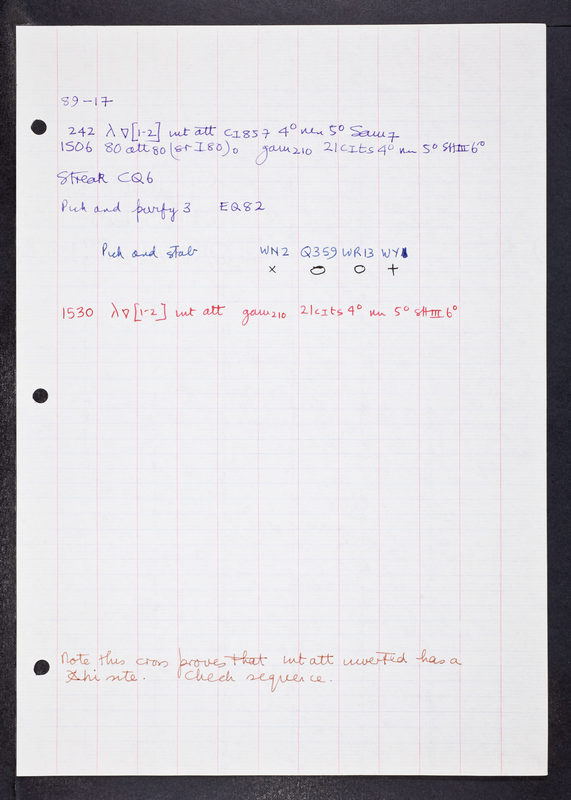 89-17
242 λ ∇[1-2] int att cI857 4° nin 5° Sam7
1506 80 att80 (sr I 80)0 gam210 21cIts 4° nin 5° SHIII 6°
Streak CQ6
Pick and purify 3 EQ82
Pick and stab WN2 Q359 WR13 WY1
x o o +
1530 λ ∇[1-2] int att gam210 21cIts 4° nin 5° SHIII 6°
Note this cross proves that int att inverted has a
Chi site. Check sequence.